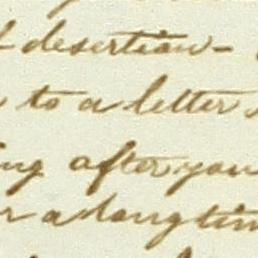 desertion –
to a letter
after you
a long tim